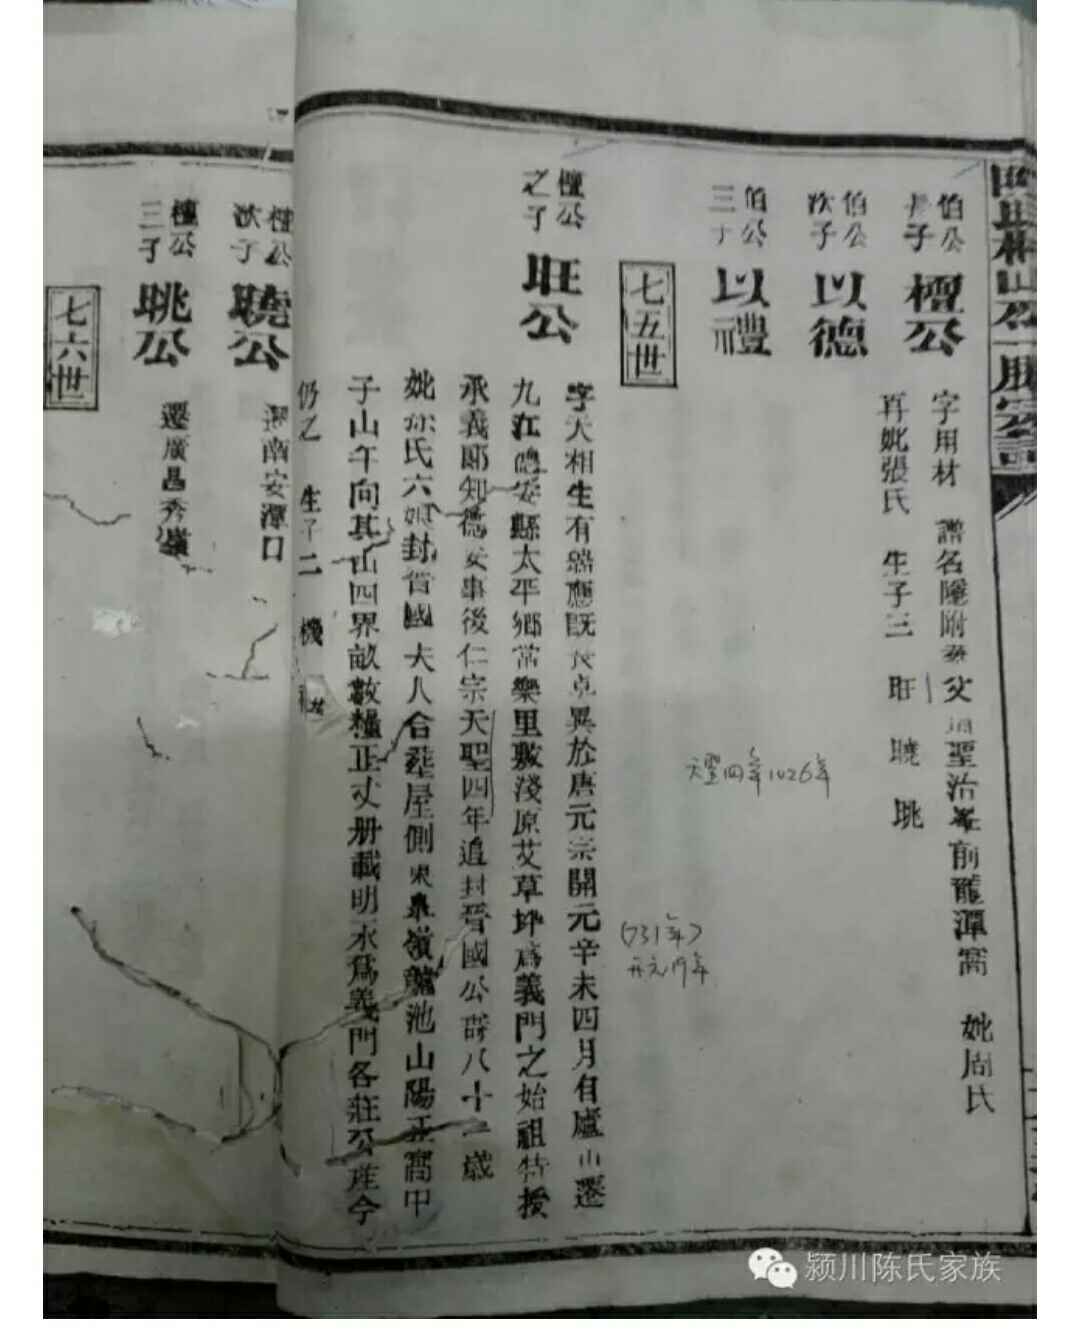 伯公長子
檀公
字用材
譜名隱附
父
聖治峯前龍潭窩
妣周氏
再妣張氏
生子三
旺
曉
眺
伯公次子
以德
伯公三子
以禮
七五世
檀公之子
旺公
字天相生有瑞應既長卓異於唐元宗開元辛未四月自廬山遷
九江德安縣太平鄉常樂里數淺原艾草坪爲義門之始祖特授
承義郎知德安事後仁宗天聖四年追封晉國公壽八十二歲
妣 氏六娘封晉國夫人合塟屋側 嶺 池山陽 窩甲
子山午向其山四界畝數糧正丈册載明永爲義門各莊公產今
仍之
生子二
機
天聖四年1026年
(731年)
开元19年
檀公次子
曉公
遷南安潭口
檀公三子
眺公
遷廣昌秀嶺
七六世
颍川陈氏家族